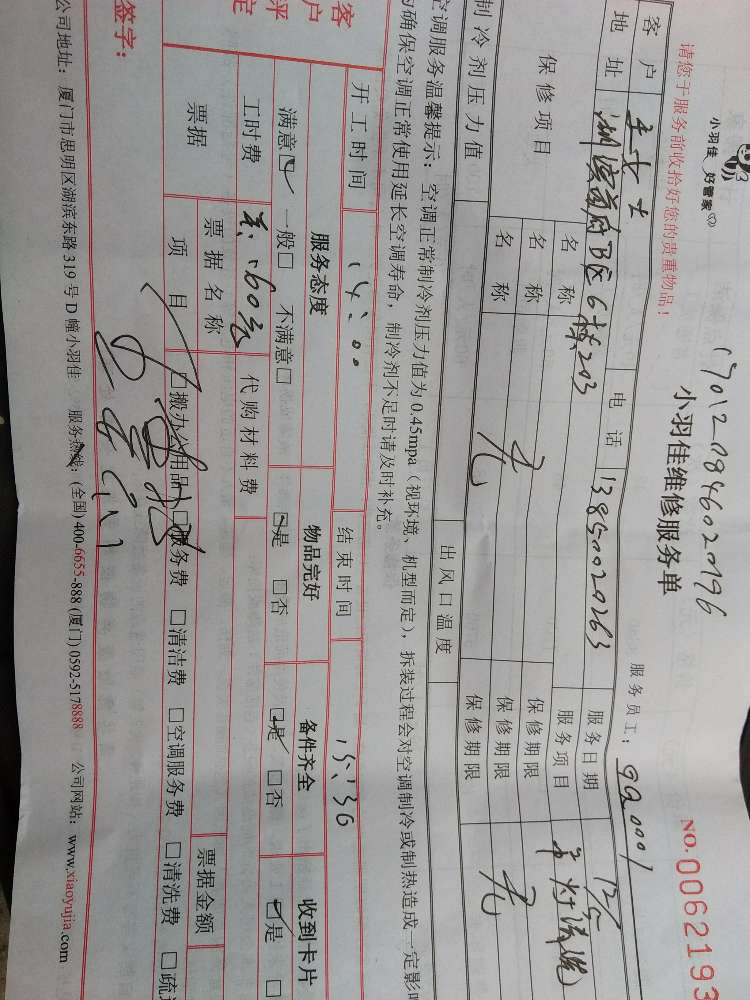 小羽佳 好管家
请您于服务前收拾好您的贵重物品！
17012084602096
小羽佳维修服务单
服务员工：990001
NO.0062193
客户 女士 电话 13850020263 服务日期 12/5
地址 湖滨首府B区6栋203 服务项目
保修项目 名称 保修期限
名称 无 保修期限 无
制冷剂压力值 出风口温度
空调服务温馨提示：空调正常制冷剂压力值为0.45mpa（视环境、机型而定），拆装过程会对空调制冷或制热造成一定影
确保空调正常使用延长空调寿命，制冷剂不足时请及时补充。
开工时间 14:00 结束时间 15:36
客户评定
服务态度 物品完好 备件齐全 收到卡片
满意☑ 一般□ 不满意□ ☑是 □否 ☑是 □否 ☑是 □
工时费 160元 代购材料费
票据 票据名称 票据金额
项目 □搬办公用品 □服务费 □清洁费 □空调服务费 □清洗费 □疏
签字：
公司地址：厦门市思明区湖滨东路319号D幢小羽佳 服务热线：(全国)400-6655-888 (厦门)0592-5178888 公司网站：www.xiaoyujia.com